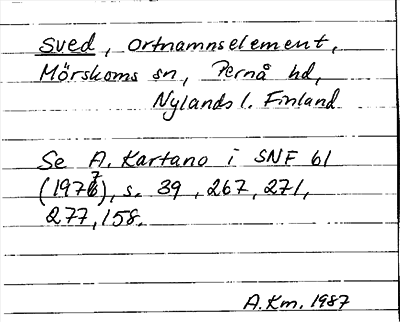 sved, ortnamnselement,
Mörskoms sn, Pernå hd,
Nylands l. Finland
Se A. Kartano i SNF 61
(1977), s. 39, 267, 271,
277, 158.
A.Km. 1987